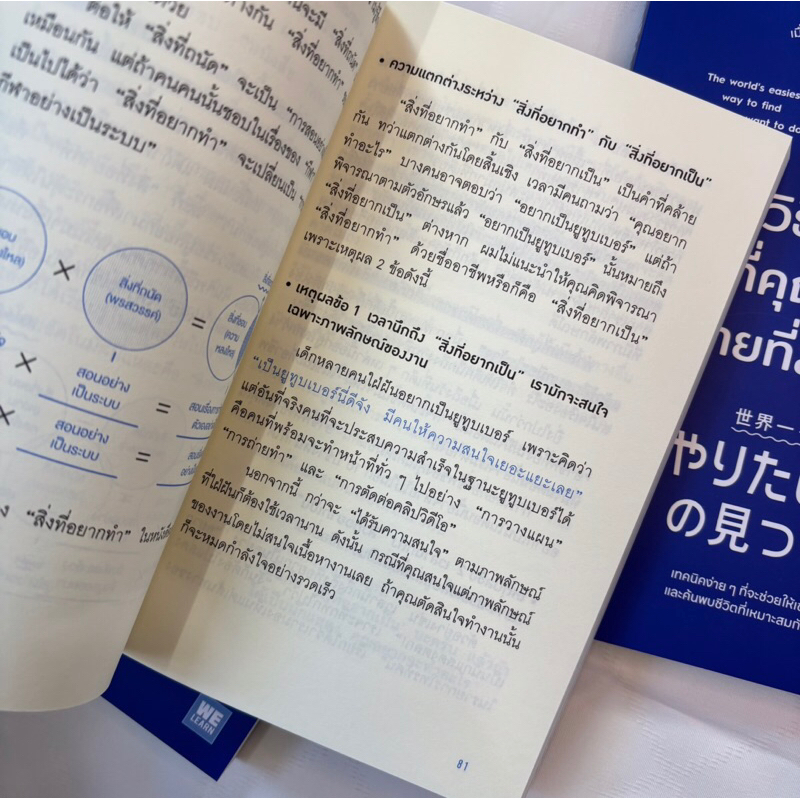 ต่อให้ “สิ่งที่ถนัด” จะเป็น “การสอน
เหมือนกัน แต่ถ้าคนคนนั้นชอบในเรื่องของ
เป็นไปได้ว่า “สิ่งที่อยากทำ” จะเปลี่ยนเป็น
กีฬาอย่างเป็นระบบ”
×
สิ่งที่ถนัด
(พรสวรรค์)
=
×
สอนอย่าง
เป็นระบบ
=
×
สอนอย่าง
เป็นระบบ
=
“สิ่งที่อยากทำ” ในหนังสือ
• ความแตกต่างระหว่าง “สิ่งที่อยากทำ” กับ “สิ่งที่อยากเป็น”
“สิ่งที่อยากทำ” กับ “สิ่งที่อยากเป็น” เป็นคำที่คล้าย
กัน ทว่าแตกต่างกันโดยสิ้นเชิง เวลามีคนถามว่า “คุณอยาก
ทำอะไร” บางคนอาจตอบว่า “อยากเป็นยูทูบเบอร์” แต่ถ้า
พิจารณาตามตัวอักษรแล้ว “อยากเป็นยูทูบเบอร์” นั้นหมายถึง
“สิ่งที่อยากเป็น” ต่างหาก ผมไม่แนะนำให้คุณคิดพิจารณา
“สิ่งที่อยากทำ” ด้วยชื่ออาชีพหรือก็คือ “สิ่งที่อยากเป็น”
เพราะเหตุผล 2 ข้อดังนี้
• เหตุผลข้อ 1 เวลานึกถึง “สิ่งที่อยากเป็น” เรามักจะสนใจ
เฉพาะภาพลักษณ์ของงาน
เด็กหลายคนใฝ่ฝันอยากเป็นยูทูบเบอร์ เพราะคิดว่า
“เป็นยูทูบเบอร์นี่ดีจัง มีคนให้ความสนใจเยอะแยะเลย”
แต่อันที่จริงคนที่จะประสบความสำเร็จในฐานะยูทูบเบอร์ได้
คือคนที่พร้อมจะทำหน้าที่ทั่ว ๆ ไปอย่าง “การวางแผน”
“การถ่ายทำ” และ “การตัดต่อคลิปวิดีโอ”
นอกจากนี้ กว่าจะ “ได้รับความสนใจ” ตามภาพลักษณ์
ที่ใฝ่ฝันก็ต้องใช้เวลานาน ดังนั้น กรณีที่คุณสนใจแต่ภาพลักษณ์
ของงานโดยไม่สนใจเนื้อหางานเลย ถ้าคุณตัดสินใจทำงานนั้น
ก็จะหมดกำลังใจอย่างรวดเร็ว
81
The world's easiest
way to find
want to do
ที่คุณ
世界一
やりたい
の見つ
เทคนิคง่าย ๆ ที่จะช่วยให้
และค้นพบชีวิตที่เหมาะสม
WE
LEARN